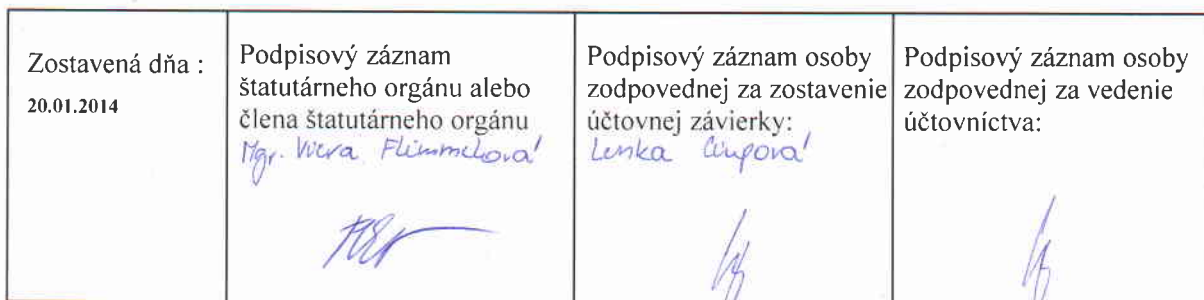 Zostavená dňa :
20.01.2014
Podpisový záznam
štatutárneho orgánu alebo
člena štatutárneho orgánu
Mgr. Viera
Podpisový záznam osoby
zodpovednej za zostavenie
účtovnej závierky:
Lenka
Podpisový záznam osoby
zodpovednej za vedenie
účtovníctva: